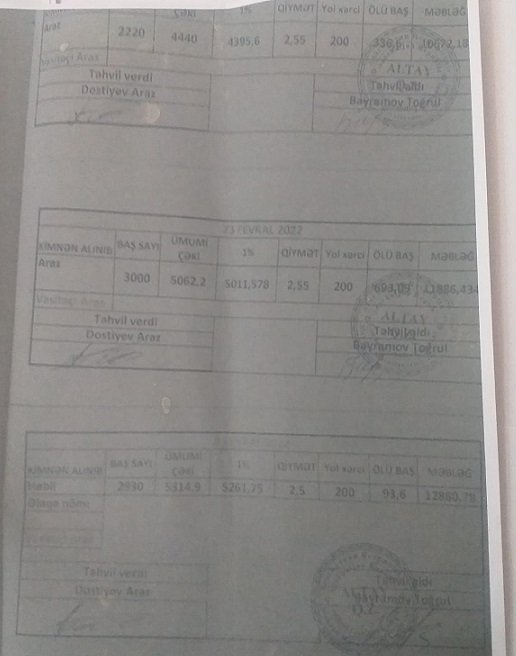 ÇƏKİ 1% QİYMƏT Yol xərci ÖLÜ BAŞ MƏBLƏĞ
Araz 2220 4440 4395,6 2,55 200
Vasitəçi Araz
Təhvil verdi Təhvil aldı
Dostiyev Araz Bayramov Toğrul
ALTAY
23 FEVRAL 2022
KİMNƏN ALINIB BAŞ SAYI ÜMUMİ ÇƏKİ 1% QİYMƏT Yol xərci ÖLÜ BAŞ MƏBLƏĞ
Araz 3000 5062,2 5011,578 2,55 200 11886,434
Vasitəçi Araz
Təhvil verdi Təhvil aldı
Dostiyev Araz Bayramov Toğrul
ALTAY
KİMNƏN ALINIB BAŞ SAYI ÜMUMİ ÇƏKİ 1% QİYMƏT Yol xərci ÖLÜ BAŞ MƏBLƏĞ
Habil 2930 5314,9 5261,75 2,5 200 93,6 12860,78
Əlaqə nömr
Təhvil verdi Təhvil aldı
Dostiyev Araz Bayramov Toğrul